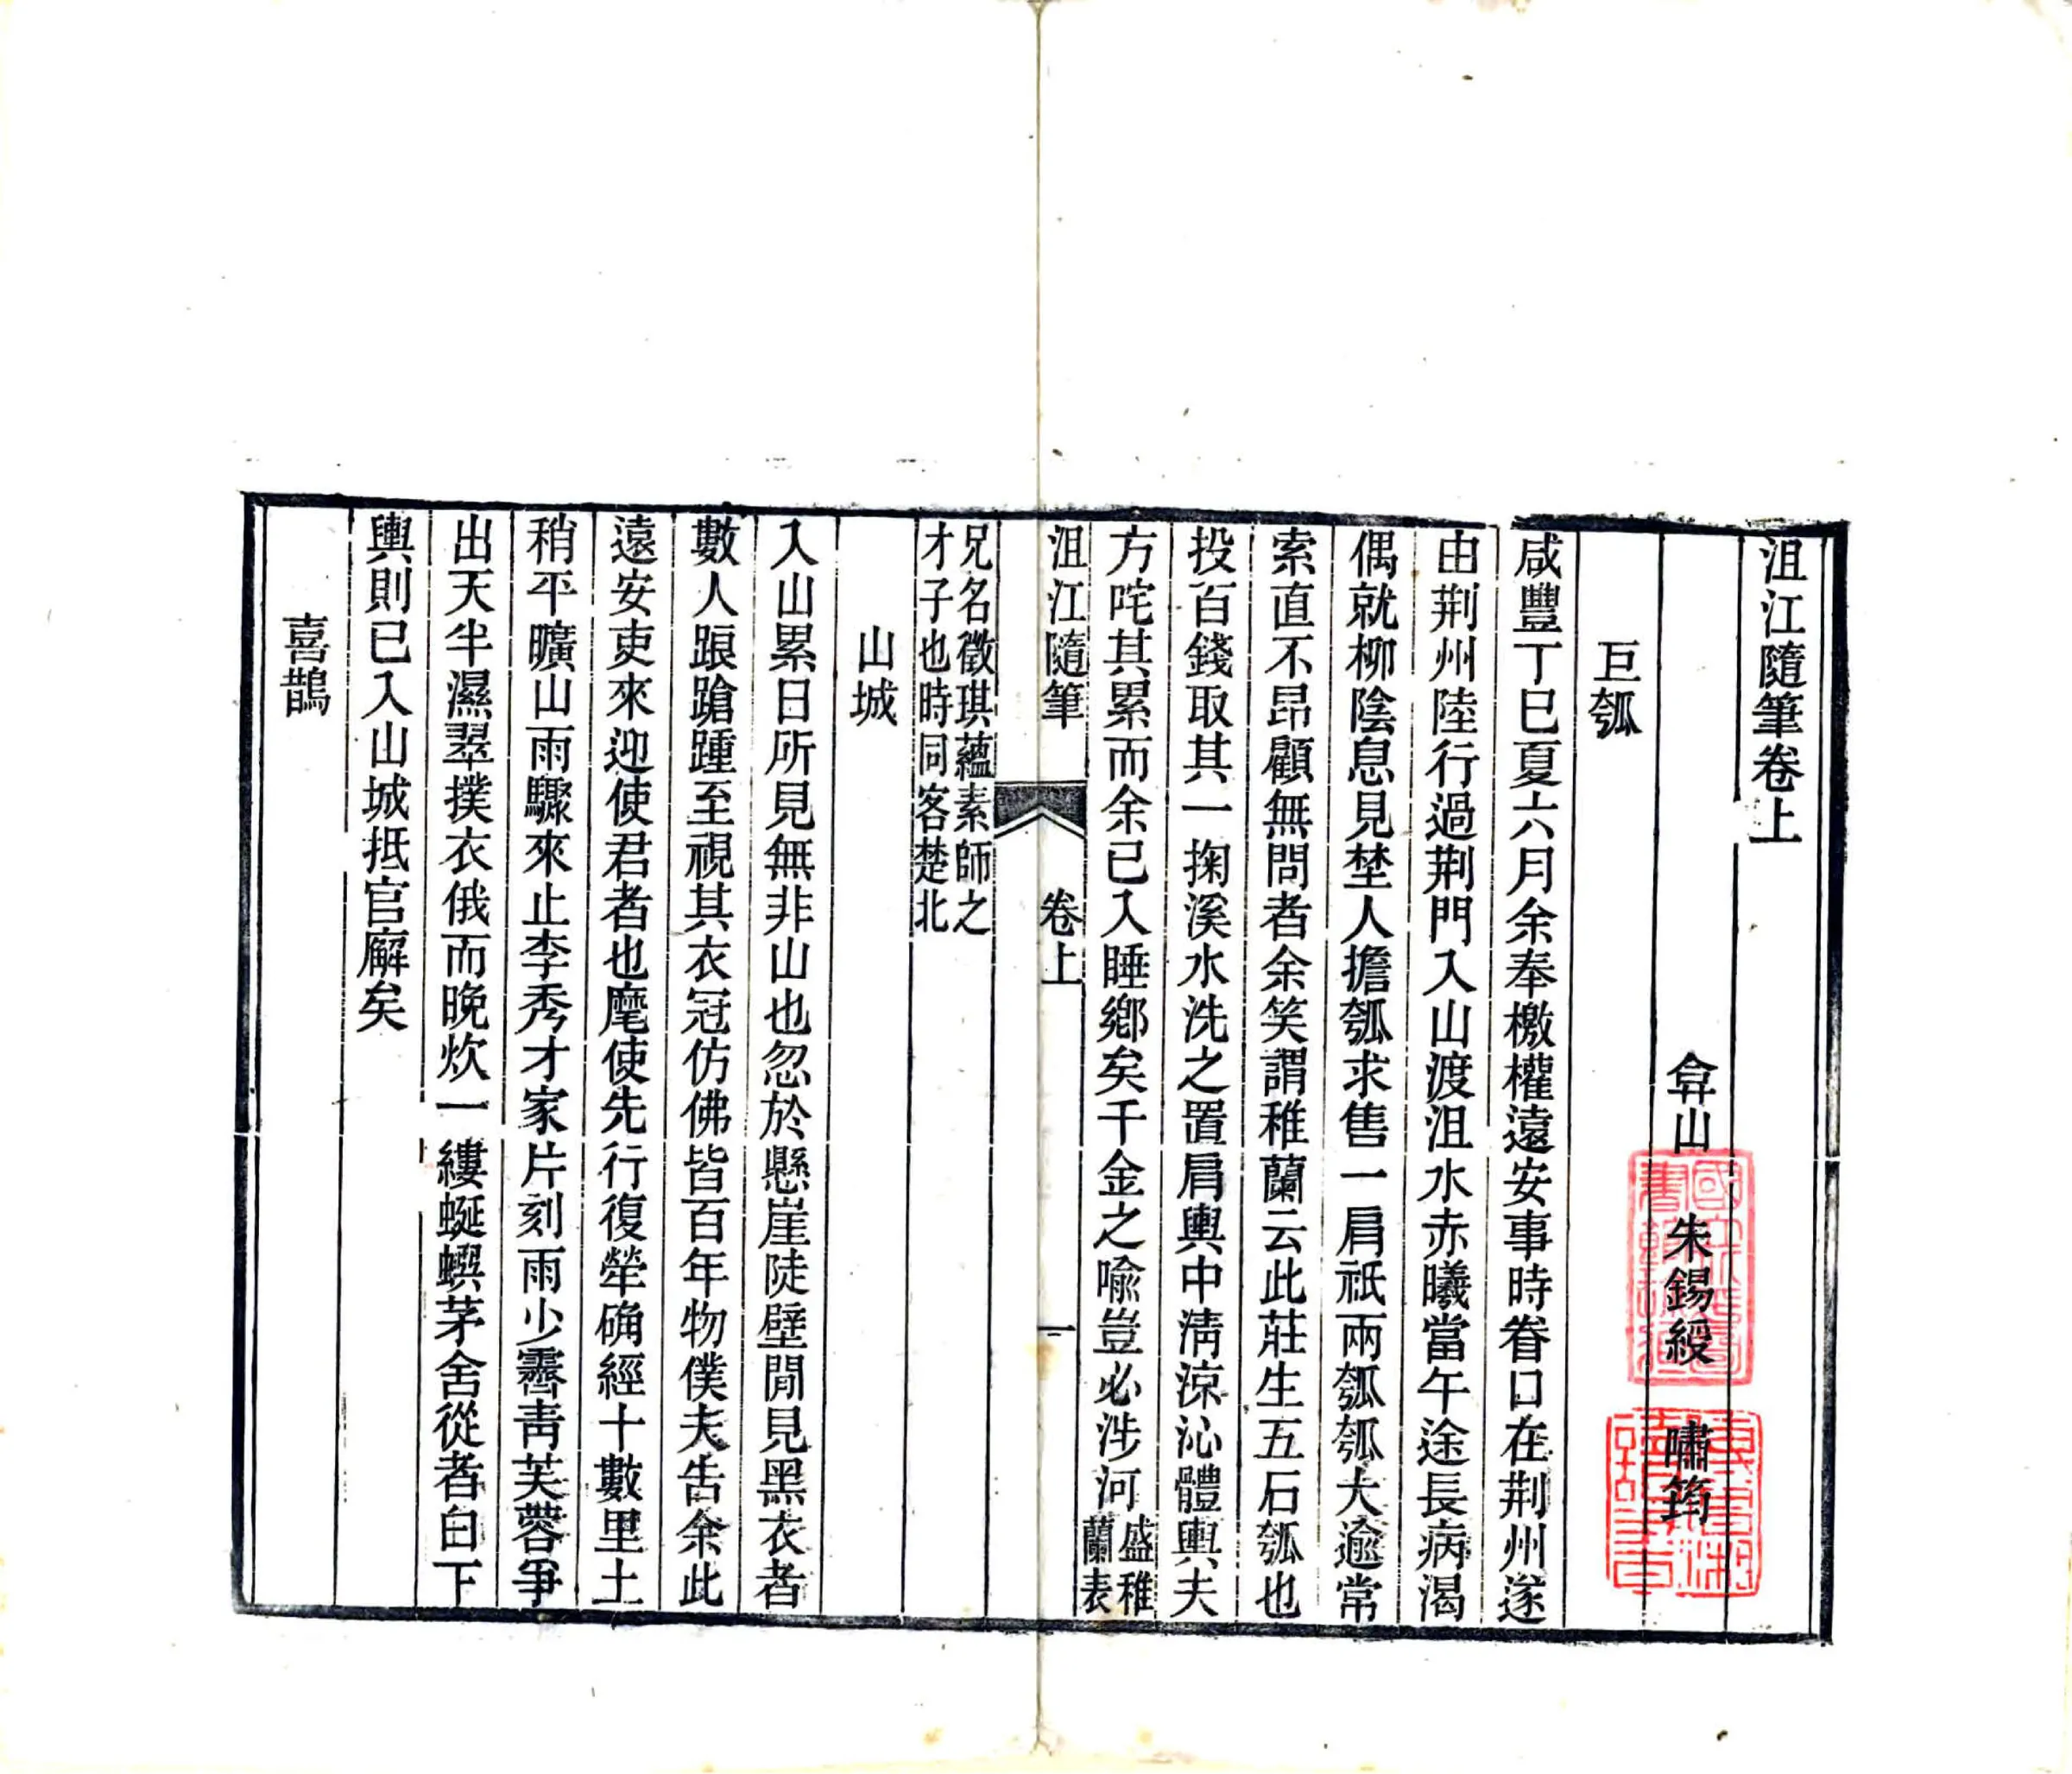 沮江隨筆卷上
弇山　朱錫綬　嘯筠
巨瓠
咸豐丁巳夏六月余奉檄權遠安事時眷口在荆州遂
由荆州陸行過荆門入山渡沮水赤曦當午途長病渴
偶就柳陰息見埜人擔瓠求售一肩祇兩瓠瓠大逾常
索直不昂顧無問者余笑謂稚蘭云此莊生五石瓠也
投百錢取其一掬溪水洗之置肩輿中淸涼沁體輿夫
方咤其累而余已入睡鄉矣千金之喻豈必涉河盛稚
蘭表
沮江隨筆　卷上　一
兄名徵琪蘊素師之
才子也時同客楚北
山城
入山累日所見無非山也忽於懸崖陡壁閒見黑衣者
數人踉蹌踵至視其衣冠仿佛皆百年物僕夫告余此
遠安吏來迎使君者也麾使先行復犖确經十數里土
稍平曠山雨驟來止李秀才家片刻雨少霽靑芙蓉爭
出天半濕翠撲衣俄而晚炊一縷蜒蟤茅舍從者曰下
輿則已入山城抵官廨矣
喜鵲